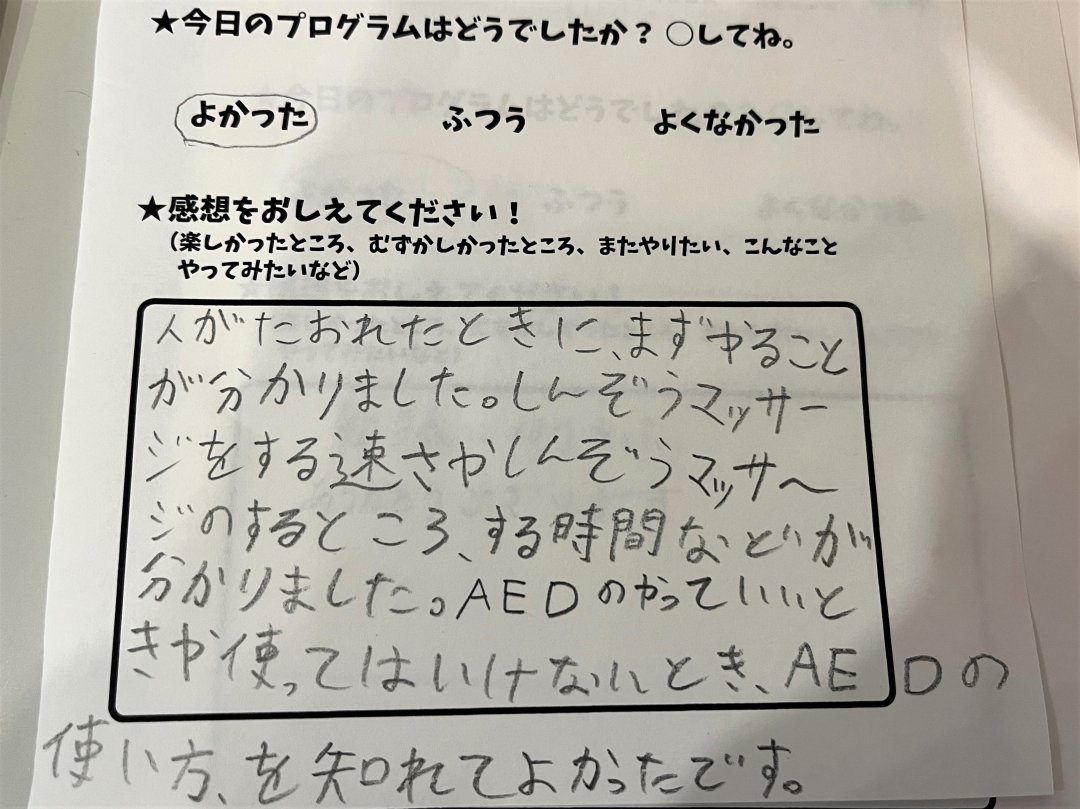 ★今日のプログラムはどうでしたか？ ○してね。
よかった ふつう よくなかった
★感想をおしえてください！
（楽しかったところ、むずかしかったところ、またやりたい、こんなこと
やってみたいなど）
人がたおれたときに、まずやること
が分かりました。しんぞうマッサー
ジをする速さやしんぞうマッサー
ジのするところ、する時間などが
分かりました。AEDのやっていいと
きや使ってはいけないとき、AEDの
使い方、を知れてよかったです。